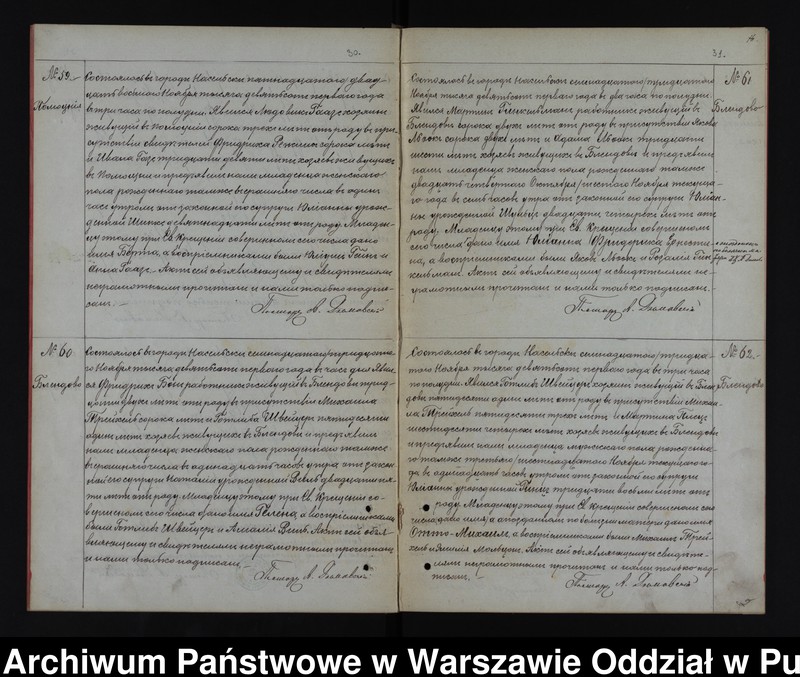 30.
№ 59.
Холоцкiя
Состоялось въ городѣ Насельскѣ пятнадцатаго двад-
цать восьмаго Ноября тысяча девятьсотъ перваго года
въ три часа по полудни. Явился Людовикъ Гаазе хозяинъ
живущiй въ сорока трехъ лѣтъ отъ роду въ при-
сутствiи свидѣтелей Фридриха сорока лѣтъ
и Ивана Гаазе тридцати девяти лѣтъ хозяевъ живущихъ
въ и предъявилъ намъ младенца женскаго
пола рожденнаго тамже вчерашняго числа въ одинъ
часъ утромъ отъ законной его супруги Юлiанны урож-
денной девятнадцати лѣтъ отъ роду. Младен-
цу этому при Св. Крещенiи совершенномъ сего числа дано
имя Берта, а воспрiемниками были и
Анна Гаазе. Актъ сей объявляющему и свидѣтелямъ
неграмотнымъ прочитанъ и нами только подпи-
санъ.
Пасторъ А.
№ 60
Блендово
Состоялось въ городѣ Насельскѣ семнадцатаго/тридцата-
го Ноября тысяча девятьсотъ перваго года въ часъ дня Явил-
ся Фридрихъ работникъ живущiй въ Блендовѣ трид-
цати двухъ лѣтъ отъ роду въ присутствiи Михаила
сорока лѣтъ и Готлиба Швейцеръ пятидесяти
одинъ лѣтъ хозяевъ живущихъ въ Блендовѣ и предъявилъ
намъ младенца женскаго пола рожденнаго тамже
вчерашняго числа въ одинадцать часовъ утра отъ закон-
ной его супруги Наталiи урожденной двадцати пя-
ти лѣтъ отъ роду. Младенцу этому при Св. Крещенiи со-
вершенномъ сего числа дано имя Гелена, а воспрiемниками
были Готлибъ Швейцеръ и Амалiя Актъ сей объя-
вляющему и свидѣтелямъ неграмотнымъ прочитанъ
и нами только подписанъ.
Пасторъ А.
31.
№ 61
Блендово
Состоялось въ городѣ Насельскѣ семнадцатаго/тридцатаго
Ноября тысяча девятьсотъ перваго года въ два часа по полудни.
Явился Мартинъ работникъ живущiй въ
Блендовѣ сорока двухъ лѣтъ отъ роду въ присутствiи Якова
сорока двухъ лѣтъ и Адама тридцати
шести лѣтъ хозяевъ живущихъ въ Блендовѣ и предъявилъ
намъ младенца женскаго пола рожденнаго тамже
двадцать четвертаго Октября/шестаго Ноября текуща-
го года въ семь часовъ утра отъ законной его супруги Юлiан-
ны урожденной двадцати четырехъ лѣтъ отъ
роду. Младенцу этому при Св. Крещенiи совершенномъ
сего числа дано имя Юлiанна Фридерика Эрнести-
на, а воспрiемниками были Яковъ и Розалiя
Актъ сей объявляющему и свидѣтелямъ не-
грамотнымъ прочитанъ и нами только подписанъ.
Пасторъ А.
№ 62.
Блендово
Состоялось въ городѣ Насельскѣ семнадцатаго/тридцата-
таго Ноября тысяча девятьсотъ перваго года въ три часа
по полудни. Явился Готлибъ Швейцеръ хозяинъ живущiй въ Блен-
довѣ пятидесяти одинъ лѣтъ отъ роду въ присутствiи Михаи-
ла пятидесяти трехъ лѣтъ и Мартина
шестидесяти четырехъ лѣтъ хозяевъ живущихъ въ Блендовѣ
и предъявилъ намъ младенца мужескаго пола рожденна-
го тамже третьяго/шестнадцатаго Ноября текущаго го-
да въ одинадцать часовъ утромъ отъ законной его супруги
Юлiанны урожденной тридцати восьми лѣтъ отъ
роду. Младенцу этому при Св. Крещенiи совершенномъ сего
числа дано имя,
Отто-Михаилъ, а воспрiемниками были Михаилъ
и Актъ сей объявляющему и свидѣте-
лямъ неграмотнымъ прочитанъ и нами только под-
писанъ.
Пасторъ А.
Archiwum Państwowe w Warszawie Oddział w Pu